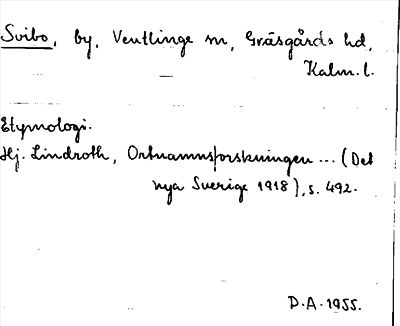 Svibo, by, Ventlinge sn, Gräsgårds hd,
Kalm. l.
Etymologi.
Hj. Lindroth, Ortnamnsforskningen ... (Det
nya Sverige 1918), s. 492.
D.A. 1955.